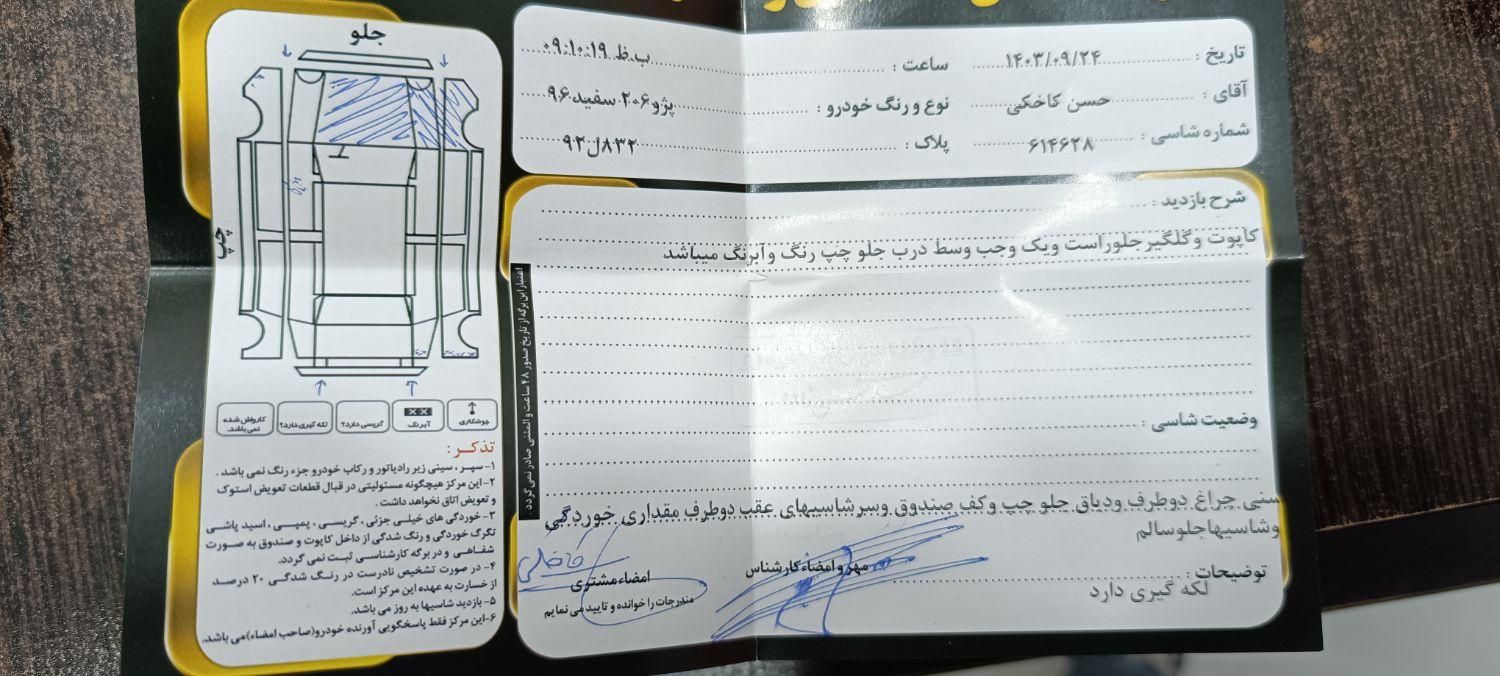 تاریخ : ۱۴۰۳/۰۹/۲۴ ساعت : ۰۹:۱۰:۱۹ ب.ظ
آقای : حسن کاخکی نوع و رنگ خودرو : پژو۲۰۶ سفید ۹۶
شماره شاسی : ۶۱۴۶۲۸ پلاک : ۸۳۲ل۹۲
شرح بازدید :
کاپوت وگلگیرجلوراست ویک وجب وسط درب جلو چپ رنگ وآبرنگ میباشد
وضعیت شاسی :
سنی چراغ دوطرف ودیاق جلو چپ وکف صندوق وسرشاسیهای عقب دوطرف مقداری خوردگی
وشاسیهاجلوسالم
توضیحات :
لکه گیری دارد
مهر و امضاء کارشناس
امضاء مشتری
مندرجات را خوانده و تایید می نمایم
اعتبار این برگه از تاریخ صدور ۴۸ ساعت و المثنی صادر نمی گردد
جلو
چپ
جوشکاری
آبرنگ
گریسی دارد؟
لکه گیری دارد؟
کارواش شده نمی باشد.
تذکر :
۱- سپر ، سینی زیر رادیاتور و رکاب خودرو جزء رنگ نمی باشد .
۲- این مرکز هیچگونه مسئولیتی در قبال قطعات تعویض استوک
و تعویض اتاق نخواهد داشت .
۳- خوردگی های خیلی جزئی ، گریسی ، پمپی ، اسید پاشی
تگرگ خوردگی و رنگ شدگی از داخل کاپوت و صندوق به صورت
شفاهی و در برگه کارشناسی ثبت نمی گردد.
۴- در صورت تشخیص نادرست در رنگ شدگی ۲۰ درصد
از خسارت به عهده این مرکز است.
۵- بازدید شاسیها به روز می باشد.
۶- این مرکز فقط پاسخگویی آورنده خودرو(صاحب امضاء)می باشد.